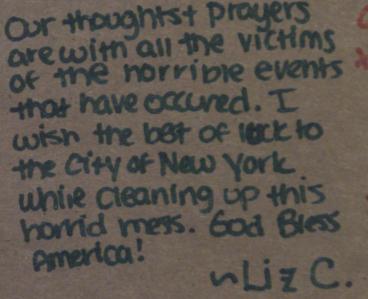 Our thoughts+ prayers
are with all the victims
of the horrible events
that have occured. I
wish the best of luck to
the City of New York
while cleaning up this
horrid mess. God Bless
America!
~Liz C.